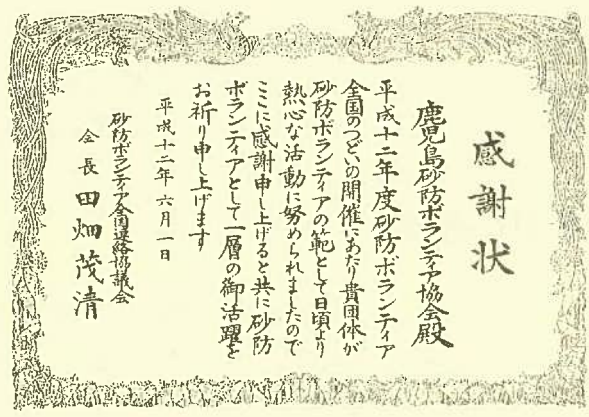 感謝状
鹿児島砂防ボランティア協会殿
平成十二年度砂防ボランティア
全国のつどいの開催にあたり貴団体が
砂防ボランティアの範として日頃より
熱心な活動に努められましたので
ここに感謝申し上げると共に砂防
ボランティアとして一層の御活躍を
お祈り申し上げます
平成十二年六月一日
砂防ボランティア全国連絡協議会
会長 田畑茂清